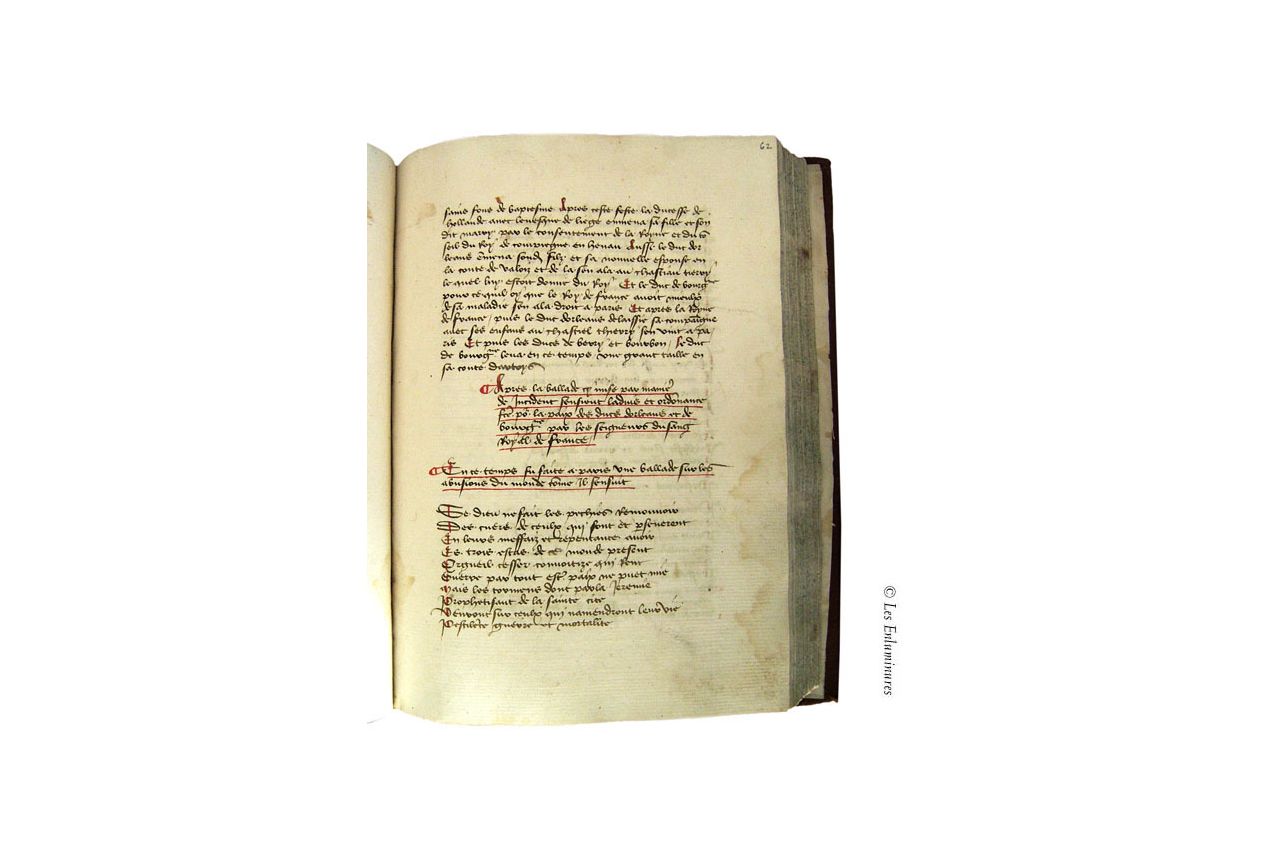 62
sains fons de baptesme Apres ceste feste la ducesse de
hollande avec levesque de liege emmena sa fille et son
dit mary par le consentement de la Royne et du cō
seil du Roy de compiegne en henau Aussi le duc dor
leans ēmena sond filz et sa nouvelle espouse en
la conte de valois et de la sen ala au chastiau tierry
le quel luy estoit donne du Roy Et le duc de bourgne
pour ce quil oy que le Roy de france avoit mieulx
de sa maladie sen ala droit a paris Et apres la Royne
de france puis le duc dorleans delaissie sa compaigne
avec ses enfans au chastiel thierry sen vint a pa
ris Et puis les ducs de berry et bourbon le duc
de bourgne leva en ce temps une grant taille en
sa conte dartoys
Apres la ballade cy mise par manie
de Incident sensuient ladvis et ordōnance
fce po la paix des ducs dorleans et de
bourgne par les seigneurs du sang
Royal de france
En ce temps fu faite a paris une ballade sur les
abusions du monde cōme il sensuit
Se dieu ne fait les pechies Remouvoir
Des cuers de ceulx qui sont et pseverent
En leurs meffaiz et repentance avoir
Les trois estas de ce monde present
Orgueil cesser convoitize qui
Guerre par tout est paix ne puet mie
Mais les tormens dont parla Jeremie
Prophetisant de la sainte cite
Venront sur ceulx qui namendront leur vie
Pestilēce guerre et mortalite
© Les Enluminures